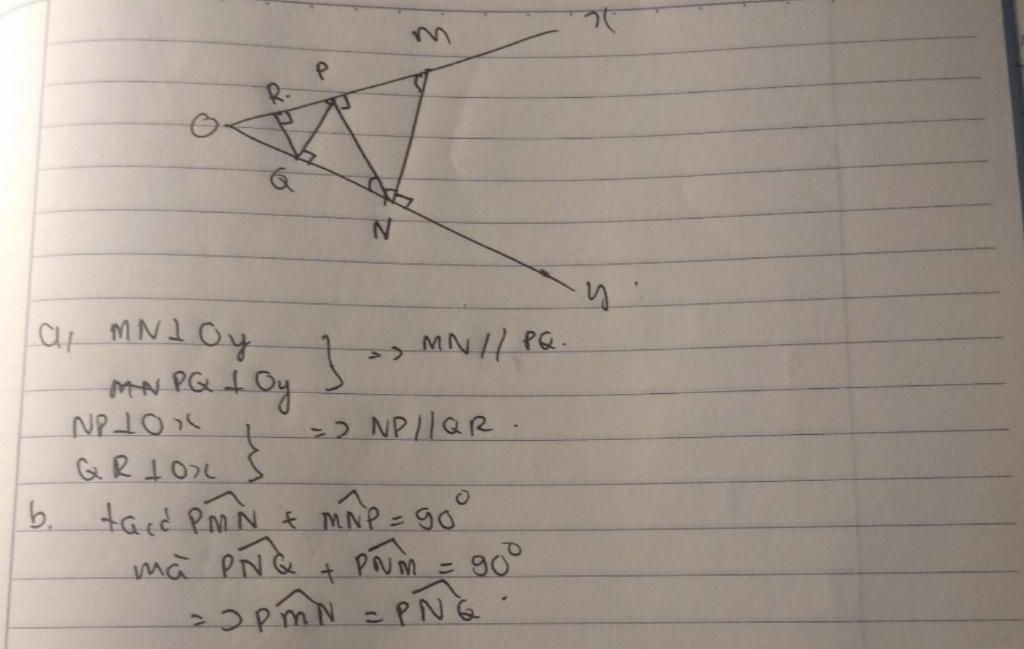 x
M
P
R.
O
Q
N
y
a, MN ⊥ Oy
PQ ⊥ Oy
} => MN // PQ.
NP ⊥ Ox
QR ⊥ Ox
} => NP // QR.
b. ta có PM̂N + MN̂P = 90°
mà PN̂Q + PN̂M = 90°
=> PM̂N = PN̂Q.